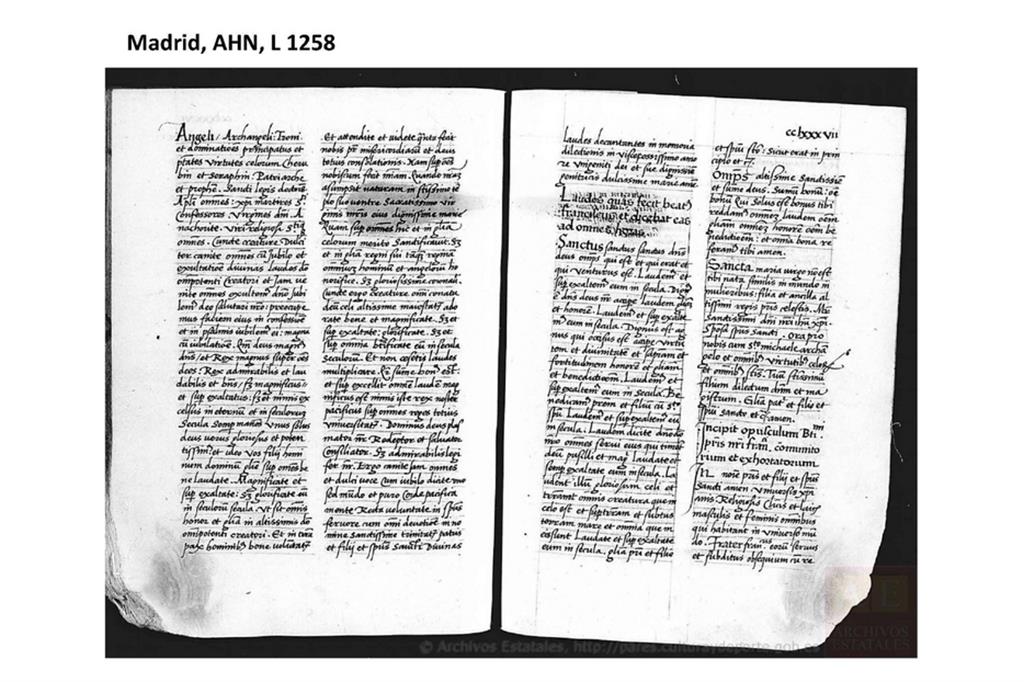 Madrid, AHN, L 1258
Angeli / Archangeli: Troni.
et dominationes principatus et
ptates virtutes celorum Cheru
bin et Seraphin Patriarche
et prophe. Sancti
Apli omnes: xpi martires
Confessores Virgines
nachorite. Viri religiosi
omnes. creature
ter canite omnes cũ Jubilo et
exultatione divinas laudes
omipotenti Creatori et Jam ve
nite omnes exultemꝰ dno Jubi
lemꝰ deo salutari nr̃o: preocupe
mus faciem eiꝰ in confessiõe
et in psalmis iubilemꝰ ei: magna
cũ iubilatiõe. Qm̃ deus magnꝰ
dns / et Rex magnus super oẽs
deos. Rex admirabilis et lau
dabilis et bñs / sz magnificus
et sup exaltatus: sz et nimis ex
celsus in eternũ et in seculorũ
Secula Semp manẽs Vnus solus
deus verus gloriosus et poten
tissimꝰ. et ideo Vos filij homi
num dominũ sup omẽs be
ne laudate. Magnificate et
sup exaltate: Sz glorificate eũ
in seculorũ secula. Vt sit omis
honor et gl̃ia in altissimis deo
omipotenti creatori. Et in terra
pax hominibꝰ bone voluntatꝭ
Et attendite et videte fecit
nobis pr̃ misericordiarũ et deus
totius consolationis. Nam
nobiscum fecit Quando
asumpsit naturam in
plo suo ventre Sacratissimo vir
ginis mr̃is eius dignissime marie
Quam sup omnes hic et in gl̃ia
celorum merito Sanctificavit. Sz
et in gl̃ia regni sui regina
omniuz hominũ et angelorũ ho
norifice. Sz gloriosissime coronavit.
Unde ergo creature omni conata
deuoti altissime maiestatꝭ ado
rate bene et magnificate. Sz
sup exaltate: glorificate. Sz et
sup omnia bñficate eũ in secula
seculorũ. Et non cesetis laudes
multiplicare. sũme bonꝰ est:
et sup excellit omnẽ laudẽ mag
nificus est nimis iste rex noster
pacificus sup omnes reges totius
vniuersitatꝭ. Dominus deus plas
mator nr̃. Redeptor et saluator
Consiliator. Sz admirabilis legi
fer nr̃. Ergo canite jam omnes
et dulci uoce cum iubilo
sed mũdo et puro Corde pacifica
mente Recta voluntate in spũs
feruore cum omi deuotiõe in no
mine sanctissime trinitatꝭ patris
et filij et spũs Sancti Diuinas
cclxxxvii
laudes decantantes in memoria
dilectionis in viscerosissimo amo
re Vnigeniti dei et sue dignissime
genitricis dulcissime marie
Laudes quas fecit beatꝰ
franciscus et dicebat eas
ad omnes horas
Sanctus sanctus sanctus dñs
deus omps qui est et qui erat et
qui Venturus est. Laudemꝰ et
sup exaltemꝰ eum in secula. Dignꝰ
es dñe deus nr̃ accipe laudem gl̃iaz
et honorẽ. Laudemꝰ et sup exalte
mꝰ eum in secula. Dignus est ag
nus qui occisus est accipe virtu
tem et diuinitatẽ et sapientiam et
fortitudinem honorẽ et gl̃iam
et benedictionem. Laudemꝰ et
sup exaltemꝰ eum in secula. Be
nedicamꝰ prem et filiu cũ
spũ. Laudemꝰ et sup exaltemꝰ eũ
in secula. Laudem dicite deo
omnes serui eius qui timetꝭ
deũ pusilli et magi. laudate et
semp exaltate eum in secula. La
udent illũ gloriosum celi et
terram omnis creatura que in
celo est et sup terram et subtus
terram mare et omnia que in
eo sunt Laudate et sup exaltate
eum in secula. gl̃ia pr̃i et filio
et spũi stõ: Sicut erat in prin
cipio et
Omps altissime Sanctissime
et sũme deus. Sũmũ bonũ: oẽ
bonũ Qui Solus es bonus tibi
reddamꝰ omnez laudem oẽm
gl̃iam omnez honorẽ oẽm be
nedictioẽm: et omia bona re
feramꝰ tibi amen.
Sancta maria virgo nõ est
tibi nata similis in mundo in
mulieribus: filia et ancilla al
tissimi regis pr̃is celestis.
Sanctissimi dni nr̃i ihũ xpi.
Sposa spũs sancti. Ora pro
nobis cum stõ michaele archã
gelo et omnibꝰ virtutibꝰ
et omnibꝰ stis. Tuũ
filium dilectum dñm et ma
gistrum. Gl̃ia pat et filio et
spũi sancto et amen.
Incipit opusculum
pr̃is nr̃i
rium et exhortatorium.
In nõie pr̃is et filij et spũs
Sancti amen Vniuersis xpi
anis. Religiosis Clericis et laicis
masculis et feminis omnibus
qui habitant in vniuerso mũ
do. Frater fran. eorũ seruus
et subditus obsequium cũ re
© Archivos Estatales, http://pares.culturaydeporte.gob.es
ARCHIVOS
ESTATALES